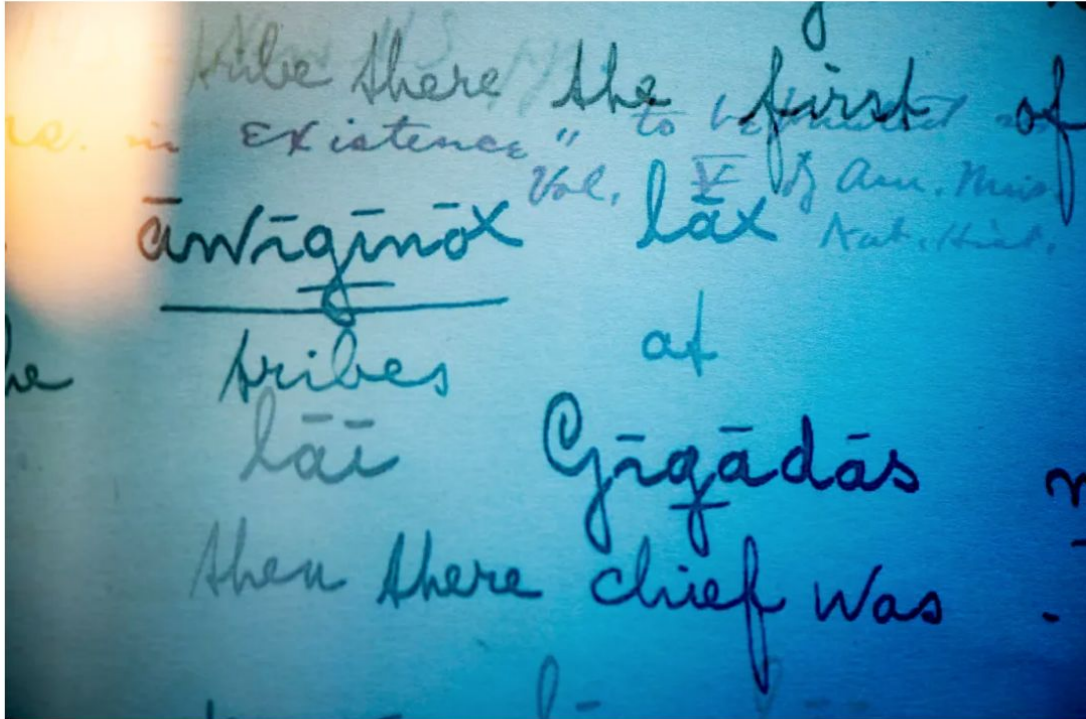 tribe there the first of
in Existence" to
Vol. V of Am. Mus.
Nat. Hist.
āwīg̱īnōx lāx
tribes at
lāī Gīg̱ādās
then there chief was